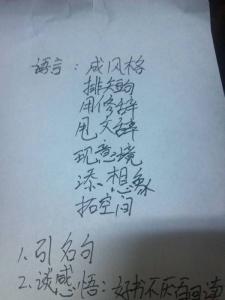 语言：成风格
排短句
用修辞
甩文辞
现意境
添想象
拓空间
1.引名句
2.谈感悟：好书不厌百回读